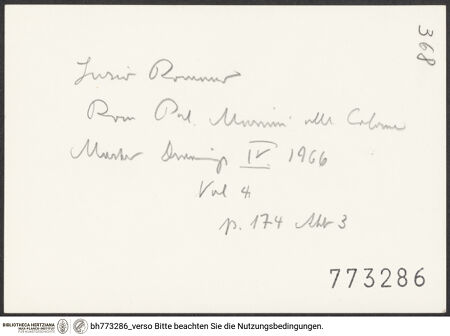 368
Luzio Romano
Rom Pal. Massimi alle Colonne
Master Drawings IV 1966
Vol 4
p. 174 Abb 3
773286
BIBLIOTHECA HERTZIANA
MAX-PLANCK-INSTITUT
FÜR KUNSTGESCHICHTE
bh773286_verso Bitte beachten Sie die Nutzungsbedingungen.